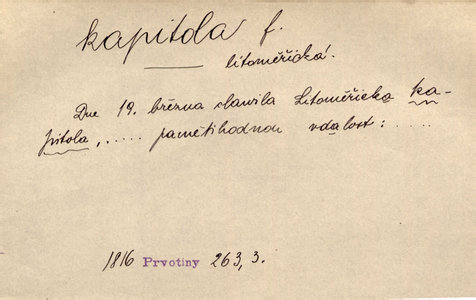 kapitola f.
litoměřická.
Dne 19. března slavila Litoměřicka ka-
pitola, ..... pamětihodnou vdalost: .....
1816 Prvotiny 263, 3.